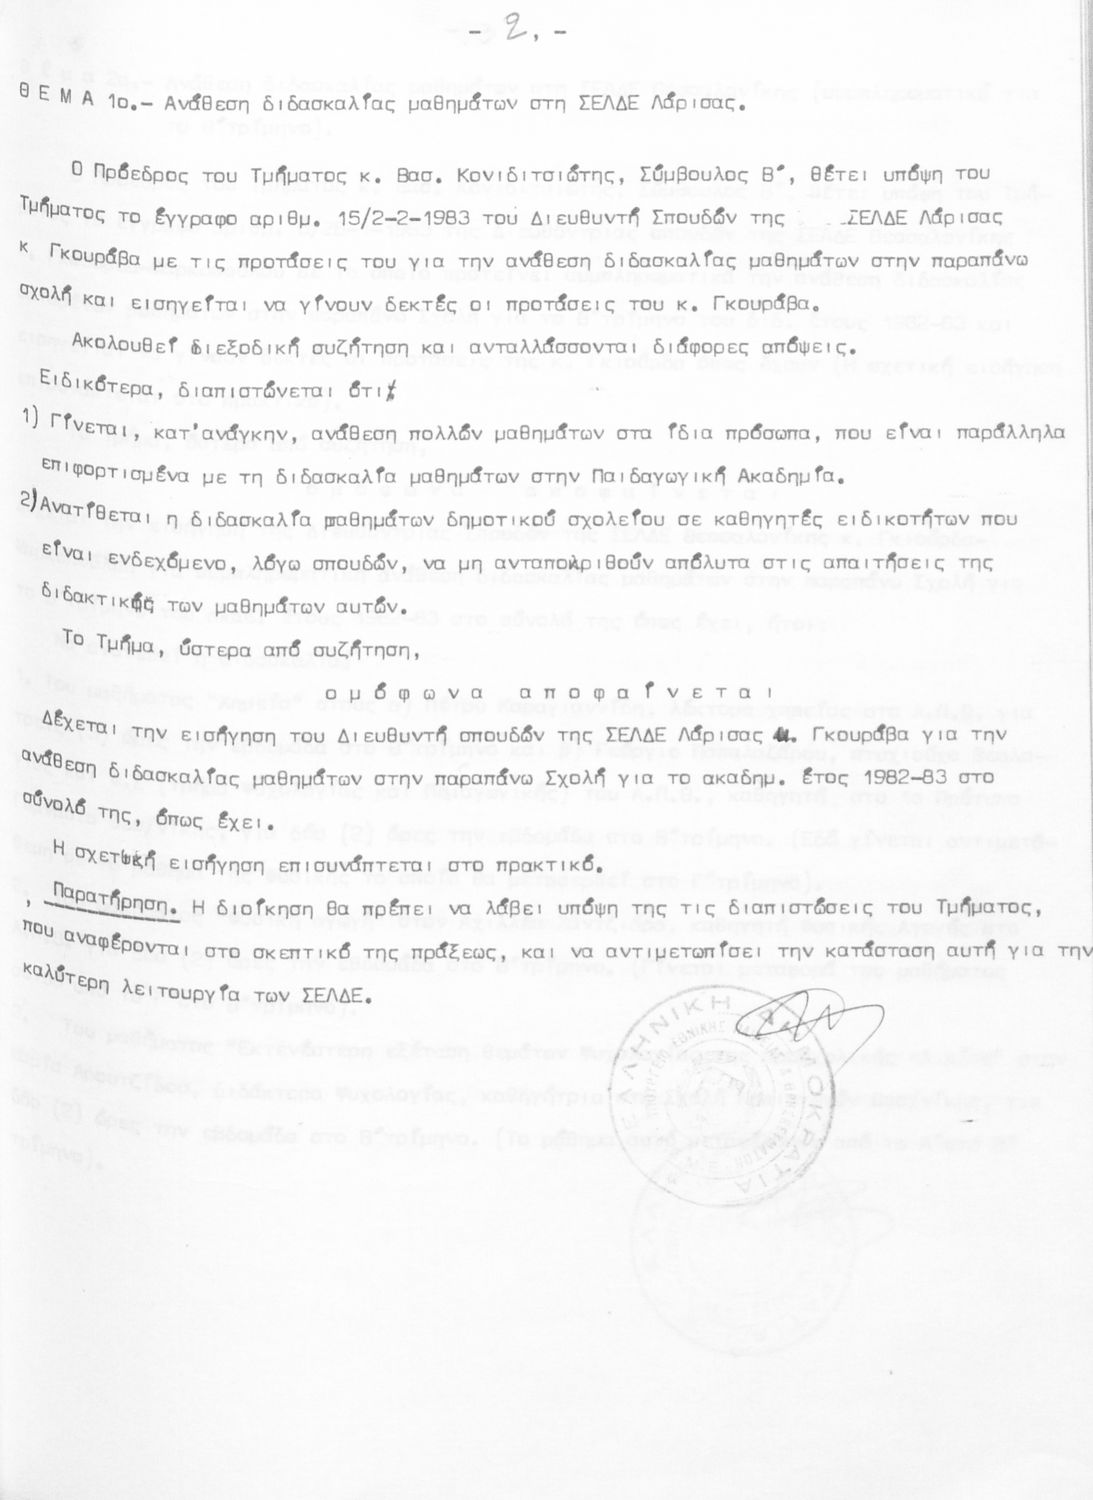 - 2. -
Θ Ε Μ Α 1ο.- Ανάθεση διδασκαλίας μαθημάτων στη ΣΕΛΔΕ Λάρισας.
Ο Πρόεδρος του Τμήματος κ. Βασ. Κονιδιτσιώτης, Σύμβουλος Β΄, θέτει υπόψη του
Τμήματος το έγγραφο αριθμ. 15/2-2-1983 του Διευθυντή Σπουδών της ΣΕΛΔΕ Λάρισας
κ. Γκουράβα με τις προτάσεις του για την ανάθεση διδασκαλίας μαθημάτων στην παραπάνω
σχολή και εισηγείται να γίνουν δεκτές οι προτάσεις του κ. Γκουράβα.
Ακολουθεί διεξοδική συζήτηση και ανταλλάσσονται διάφορες απόψεις.
Ειδικότερα, διαπιστώνεται ότι:
1) Γίνεται, κατ'ανάγκην, ανάθεση πολλών μαθημάτων στα ίδια πρόσωπα, που είναι παράλληλα
επιφορτισμένα με τη διδασκαλία μαθημάτων στην Παιδαγωγική Ακαδημία.
2) Ανατίθεται η διδασκαλία μαθημάτων δημοτικού σχολείου σε καθηγητές ειδικοτήτων που
είναι ενδεχόμενο, λόγω σπουδών, να μη ανταποκριθούν απόλυτα στις απαιτήσεις της
διδακτικής των μαθημάτων αυτών.
Το Τμήμα, ύστερα από συζήτηση,
ο μ ό φ ω ν α   α π ο φ α ί ν ε τ α ι
Δέχεται την εισήγηση του Διευθυντή σπουδών της ΣΕΛΔΕ Λάρισας κ. Γκουράβα για την
ανάθεση διδασκαλίας μαθημάτων στην παραπάνω Σχολή για το ακαδημ. έτος 1982-83 στο
σύνολό της, όπως έχει.
Η σχετική εισήγηση επισυνάπτεται στο πρακτικό.
Παρατήρηση. Η διοίκηση θα πρέπει να λάβει υπόψη της τις διαπιστώσεις του Τμήματος,
που αναφέρονται στο σκεπτικό της πράξεως, και να αντιμετωπίσει την κατάσταση αυτή για την
καλύτερη λειτουργία των ΣΕΛΔΕ.
ΕΛΛΗΝΙΚΗ ΔΗΜΟΚΡΑΤΙΑ